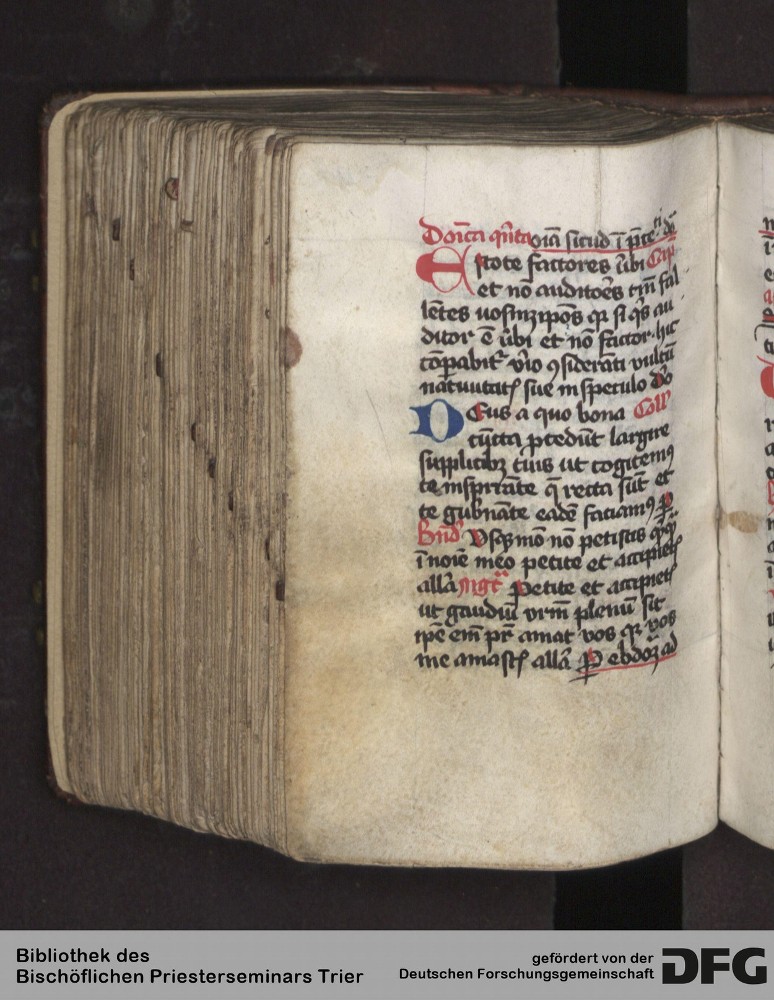 Doīca qn̄ta oīa sicud ī p̄ce. ti dō
Estote factores ūbi Capᵐ
et nō auditoēs tm̄ fal
lētes vosmꝫipōs qꝛ si qͥs au
ditor ē ūbi et nō factor. hic
cōpabit᷑ viͦo ꝯsiderāti vultū
natiuitatꝭ sue in speculo
Deus a quo bona Coll᷒
cūcta ꝓcedūt largire
supplicibꝫ tuis ut cogitemꝰ
te inspirāte q̄ recta sūt et
te gub̄nāte eadē faciamꝰ ꝑ
Bn̄d᷒ Vsqꝫmō nō petistis
ī noīe meo petite et accipietꝭ
allā mgt᷑ Petite et accipietꝭ
ut gaudiū vrm̄ plenū sit
ipē em̄ pr̄ amat vos qꝛ vos
me amastꝭ allā P ebdoꝫ ad
Bibliothek des
Bischöflichen Priesterseminars Trier
gefördert von der
Deutschen Forschungsgemeinschaft
DFG